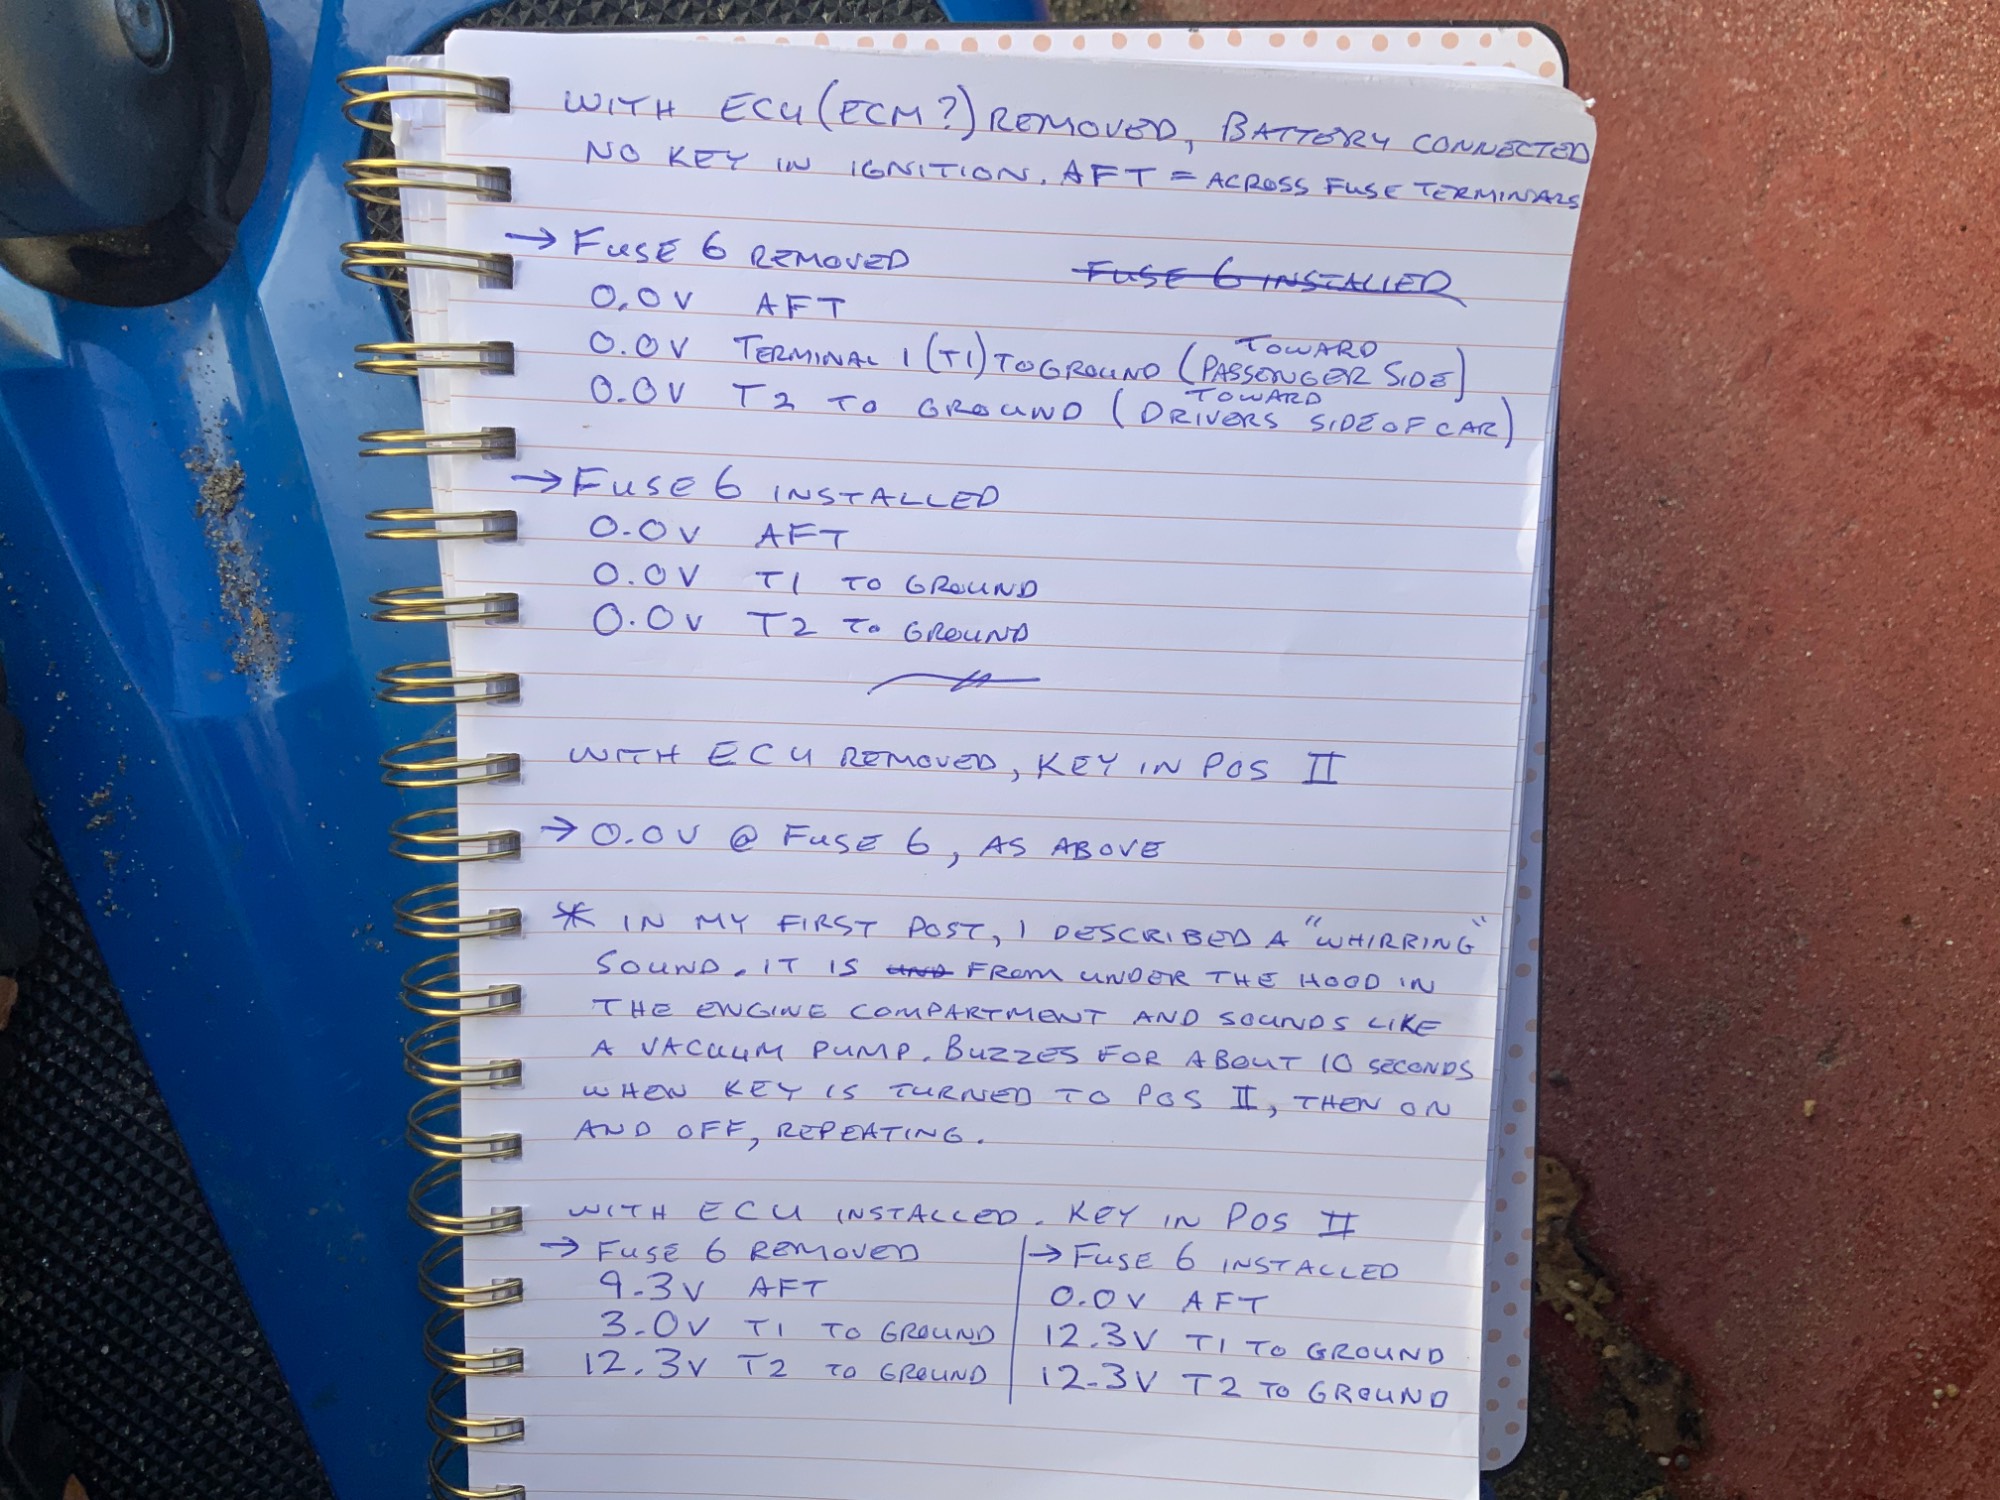 WITH ECU (ECM?) REMOVED, BATTERY CONNECTED
NO KEY IN IGNITION. AFT = ACROSS FUSE TERMINALS
→ FUSE 6 REMOVED
FUSE 6 INSTALLED
0.0V AFT
0.0V TERMINAL 1 (T1) TO GROUND (TOWARD PASSENGER SIDE)
0.0V T2 TO GROUND (TOWARD DRIVERS SIDE OF CAR)
→ FUSE 6 INSTALLED
0.0V AFT
0.0V T1 TO GROUND
0.0V T2 TO GROUND
WITH ECU REMOVED, KEY IN POS II
→ 0.0V @ FUSE 6, AS ABOVE
* IN MY FIRST POST, I DESCRIBED A "WHIRRING"
SOUND. IT IS UND FROM UNDER THE HOOD IN
THE ENGINE COMPARTMENT AND SOUNDS LIKE
A VACUUM PUMP. BUZZES FOR ABOUT 10 SECONDS
WHEN KEY IS TURNED TO POS II, THEN ON
AND OFF, REPEATING.
WITH ECU INSTALLED. KEY IN POS II
→ FUSE 6 REMOVED
9.3V AFT
3.0V T1 TO GROUND
12.3V T2 TO GROUND
→ FUSE 6 INSTALLED
0.0V AFT
12.3V T1 TO GROUND
12.3V T2 TO GROUND